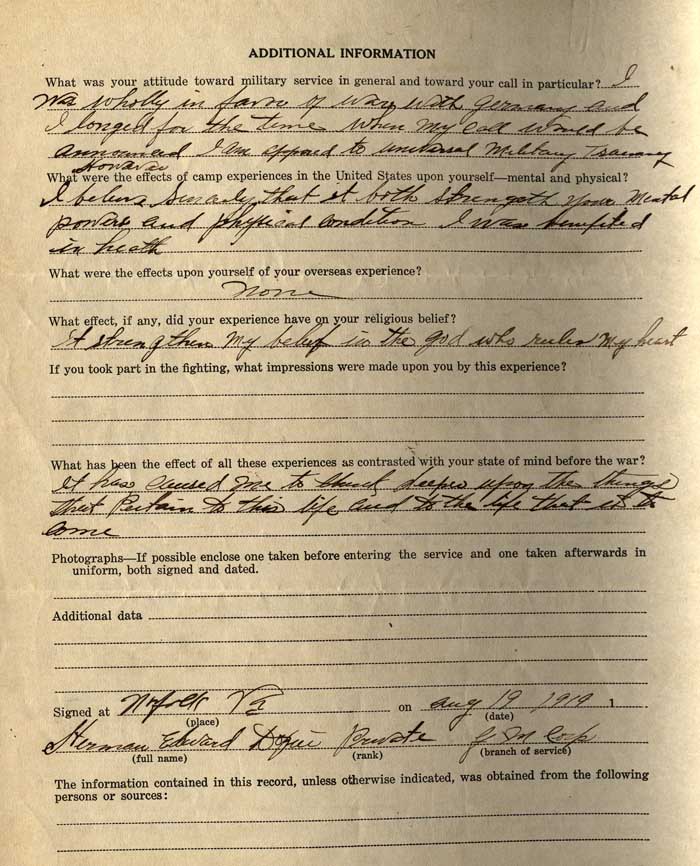 ADDITIONAL INFORMATION
What was your attitude toward military service in general and toward your call in particular? I
was wholly in favor of war with Germany and
I longed for the time when my call would be
announced I am opposed to universal Military Training
However
What were the effects of camp experiences in the United States upon yourself—mental and physical?
I believe sincerely that it both strength your mental
powers and physical condition I was benefited
in heath
What were the effects upon yourself of your overseas experience?
none
What effect, if any, did your experience have on your religious belief?
It strengthen my belief in the god who rules my heart
If you took part in the fighting, what impressions were made upon you by this experience?
What has been the effect of all these experiences as contrasted with your state of mind before the war?
It has caused me to think deeper upon the things
that Pertain to this life and to the life that is to
come
Photographs—If possible enclose one taken before entering the service and one taken afterwards in
uniform, both signed and dated.
Additional data
Signed at Norfolk Va on Aug 19 1919 1
(place) (date)
Herman Edward Private Corp
(full name) (rank) (branch of service)
The information contained in this record, unless otherwise indicated, was obtained from the following
persons or sources: